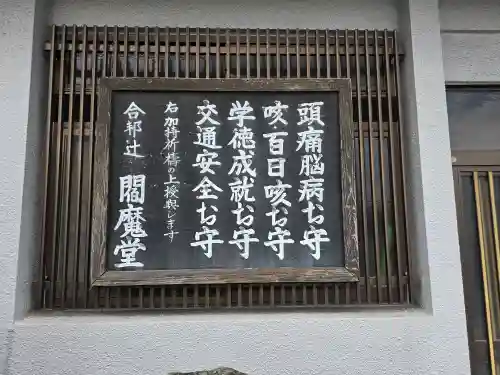 頭痛脳病お守
咳・百日咳お守
学徳成就お守
交通安全お守
右加持祈祷の上授与します
合邦辻 閻魔堂